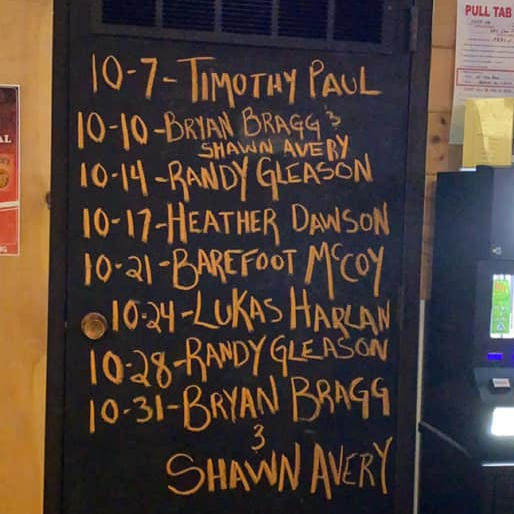 10-7-TIMOTHY PAUL
10-10-BRYAN BRAGG &
SHAWN AVERY
10-14-RANDY GLEASON
10-17-HEATHER DAWSON
10-21-BAREFOOT McCOY
10-24-LUKAS HARLAN
10-28-RANDY GLEASON
10-31-BRYAN BRAGG
&
SHAWN AVERY
PULL TAB